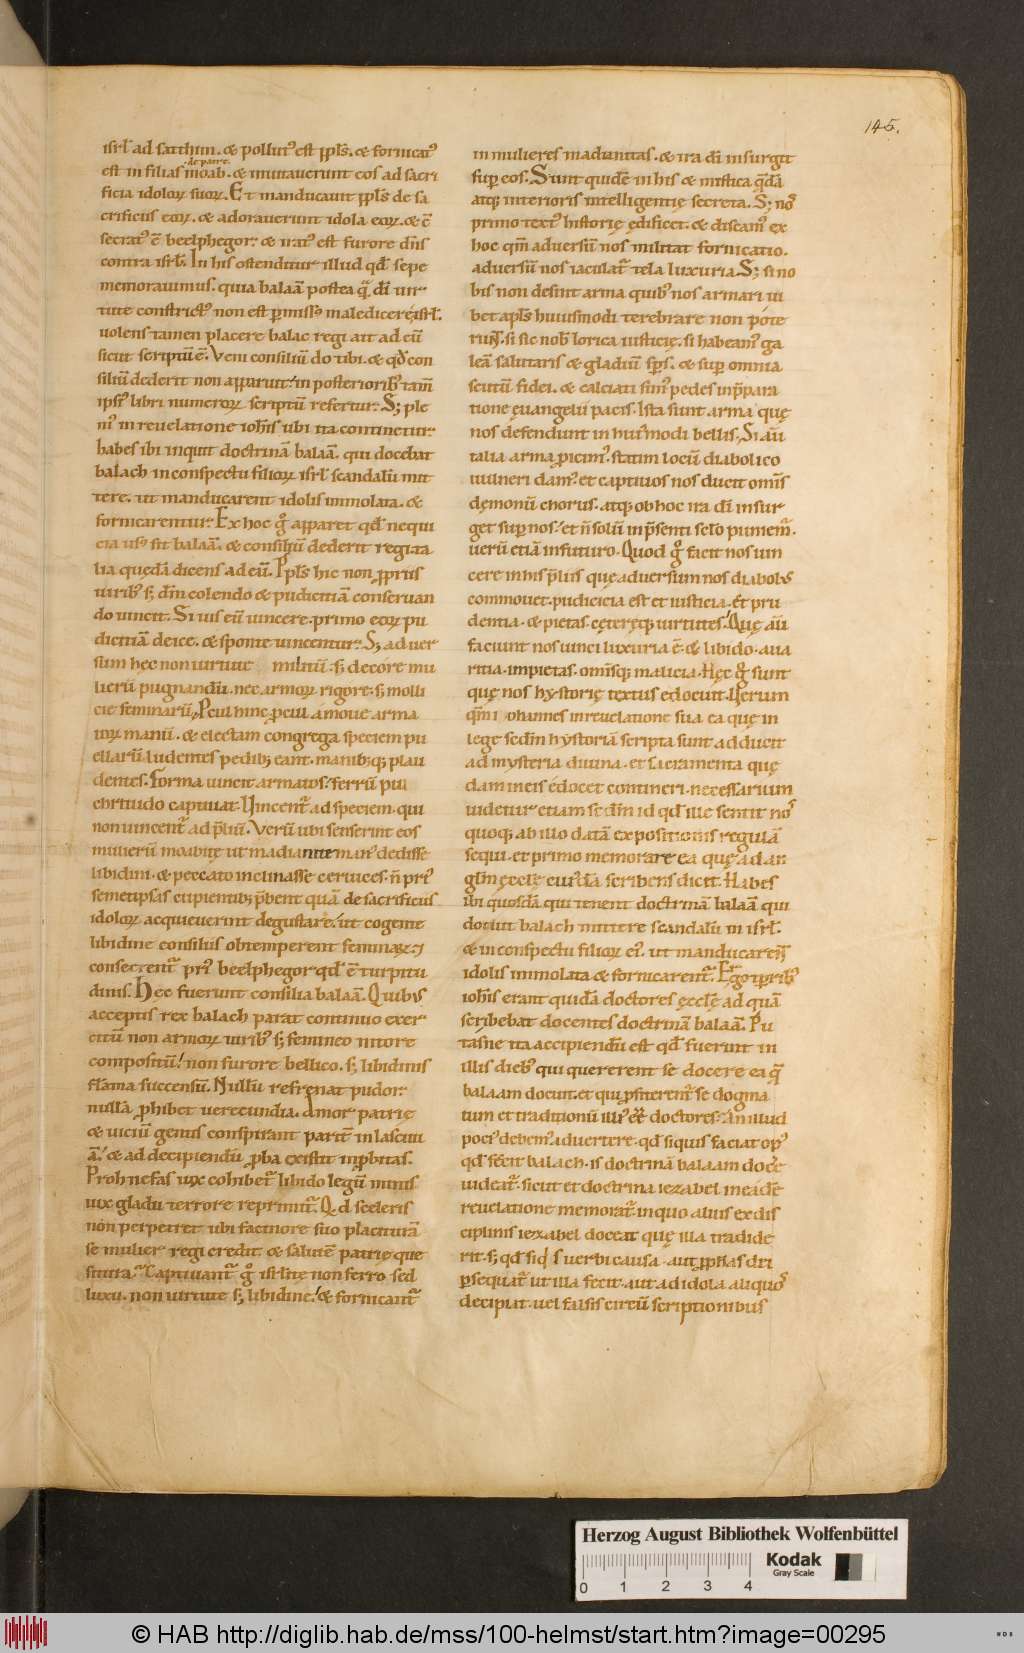 145.
isrl ad satthim. & pollut' est ppls. & fornicat'
de patre
est in filias moab. & inuitauerunt eos ad sacri
ficia idoloꝝ suoꝝ. Et manducauit ppls de sa
crificiis eoꝝ. & adorauerunt idola eoꝝ. & c̄
secrat' ē beelphegor. & irat' est furore dn̄s
contra isrl. In his ostenditur illud qd̄ sepe
memorauimus. quia balaā postea q̄ dī uir
tute constrict' non est pmiss' maledicere isrl.
uolens tamen placere balac regi ait ad eū
sicut scriptū ē. Veni consiliū do tibi. & qd̄ con
siliū dederit non apparuit. in posteriorib' tam̄
ipsi' libri numeroꝝ scriptū refertur. S; ple
ni' in reuelatione iohis ubi ita continetur.
habes ibi inquit doctrinā balaā. qui docebat
balach in conspectu filioꝝ isrl scandalū mit
tere. ut manducarent idolis immolata. &
fornicarentur. Ex hoc g° apparet qd̄ nequi
cia us' sit balaā. & consiliū dederit regi. ta
lia quedā dicens ad eū. Ppls hic non ppriis
uirib' s; dm̄ colendo & pudicitiā conseruan
do uincit. Si uis eū uincere. primo eoꝝ pu
dicitiā deice. & sponte uincentur. S; aduer
sum hec non uirtute militū. s; decore mu
lierū pugnandū. nec armoꝝ rigore. s; molli
cie feminarū. Pcul hinc pcul amoue arma
toꝝ manū. & electam congrega speciem pu
ellarū ludentes pedib; eant. manib;q; plau
dentes. Forma uincit armatos. ferrū pul
chritudo captiuat. Vincent' ad speciem. qui
non uincent' ad p̄liū. Verū ubi senserint eos
mulierū moabitę ut madianite man' dedisse
libidini. & peccato inclinasse ceruices. n̄ pri'
semetipsas cupientib; p̄bent quā de sacrificiis
idoloꝝ acquieuerint degustare. ut cogente
libidine consiliis obtemperent feminaꝝ. 7
consecrent' pri' beelphegor qd̄ ē turpitu
dinis. Hec fuerunt consilia balaā. Quibus
acceptis rex balach parat continuo exer
citū non armoꝝ uirib' s; femineo nitore
compositū. non furore bellico. s; libidinis
flāma succensū. Nullū refrenat pudor.
nullā phibet uerecundia. Amor patrie
& uiciū genus conspirant parit' in lasciui
ā. & ad decipiendū pba existit inpbitas.
Proh nefas uix cohibet' libido legū minis
uix gladii terrore reprimit'. Qd sceleris
non perpetret ubi facinore suo placiturā
se mulier regi credit. & salutē patrię que
situra. Captiuant' g° isrlite non ferro sed
luxu. non uirtute s; libidine. & fornicant'
in mulieres madianitas. & ira dī insurgit
sup eos. Sunt quidē in his & mistica q̄dā
atq; interioris intelligentię secreta. S; nos
primo text' historię ędificet. & discam' ex
hoc qm̄ aduersū nos militat fornicatio.
aduersū nos iaculat' tela luxuria. S; si no
bis non desint arma quib' nos armari iu
bet apls huiusmodi terebrare non pote
runt. si sit nob' lorica iusticię. si habeam' ga
leā salutaris & gladiū sps. & sup omnia
scutū fidei. & calciati sim' pedes inp̄para
tione ęuangelii pacis. Ista sunt arma quę
nos defendunt in hui'modi bellis. Si aū
talia arma picim'. statim locū diabolico
uulneri dam'. et captiuos nos ducit omīs
dęmonū chorus. atq; ob hoc ira dī insur
get sup nos. et n̄ solū in p̄senti sclo puniem'.
uerū etiā in futuro. Quod g° facit nos uin
cere in his p̄liis quę aduersum nos diabolus
commouet. pudicicia est et iusticia. et pru
dentia. & pietas. cęteręq; uirtutes. Quę aū
faciunt nos uinci luxuria ē. & libido. aua
ritia. impietas. omīsq; malicia. Hęc g° sunt
quę nos hystorię textus edocuit. Verum
qm̄ iohannes in reuelatione sua ea quę in
lege scdm hystoriā scripta sunt adducit
ad mysteria diuina. et sacramenta quę
dam in eis edocet contineri. necessarium
uidetur etiam scdm id qd̄ ille sentit nos
quoq; ab illo datā expositionis regulā
sequi. et primo memorare ea quę ad an
glm ęcclę cuiusdā scribens dicit. Habes
ibi quosdā qui tenent doctrinā balaā qui
docuit balach mittere scandalū in isrl.
& in conspectu filioꝝ ei'. ut manducarent
idolis immolata & fornicarent'. Ergo temporib'
iohis erant quidā doctores ęcclę ad quā
scribebat docentes doctrinā balaā. Pu
tasne ita accipiendū est qd̄ fuerunt in
illis dieb' qui quererent se docere ea q̄
balaam docuit. et qui pfiterent' se dogma
tum et traditionū illi' eē doctores. An illud
poci' debem' aduertere. qd̄ siquis faciat op'
qd̄ fecit balach. is doctrinā balaam docere
uideat'. sicut et doctrina iezabel in eadē
reuelatione memorat'. in quo alius ex dis
ciplinis iezabel doceat quę illa tradide
rit. s; qd̄ siquis uerbi causa. aut pphas dei
psequat' ut illa fecit. aut ad idola aliquos
decipiat. uel falsis circū scriptionibus
Herzog August Bibliothek Wolfenbüttel
Kodak
Gray Scale
0 1 2 3 4
© HAB http://diglib.hab.de/mss/100-helmst/start.htm?image=00295